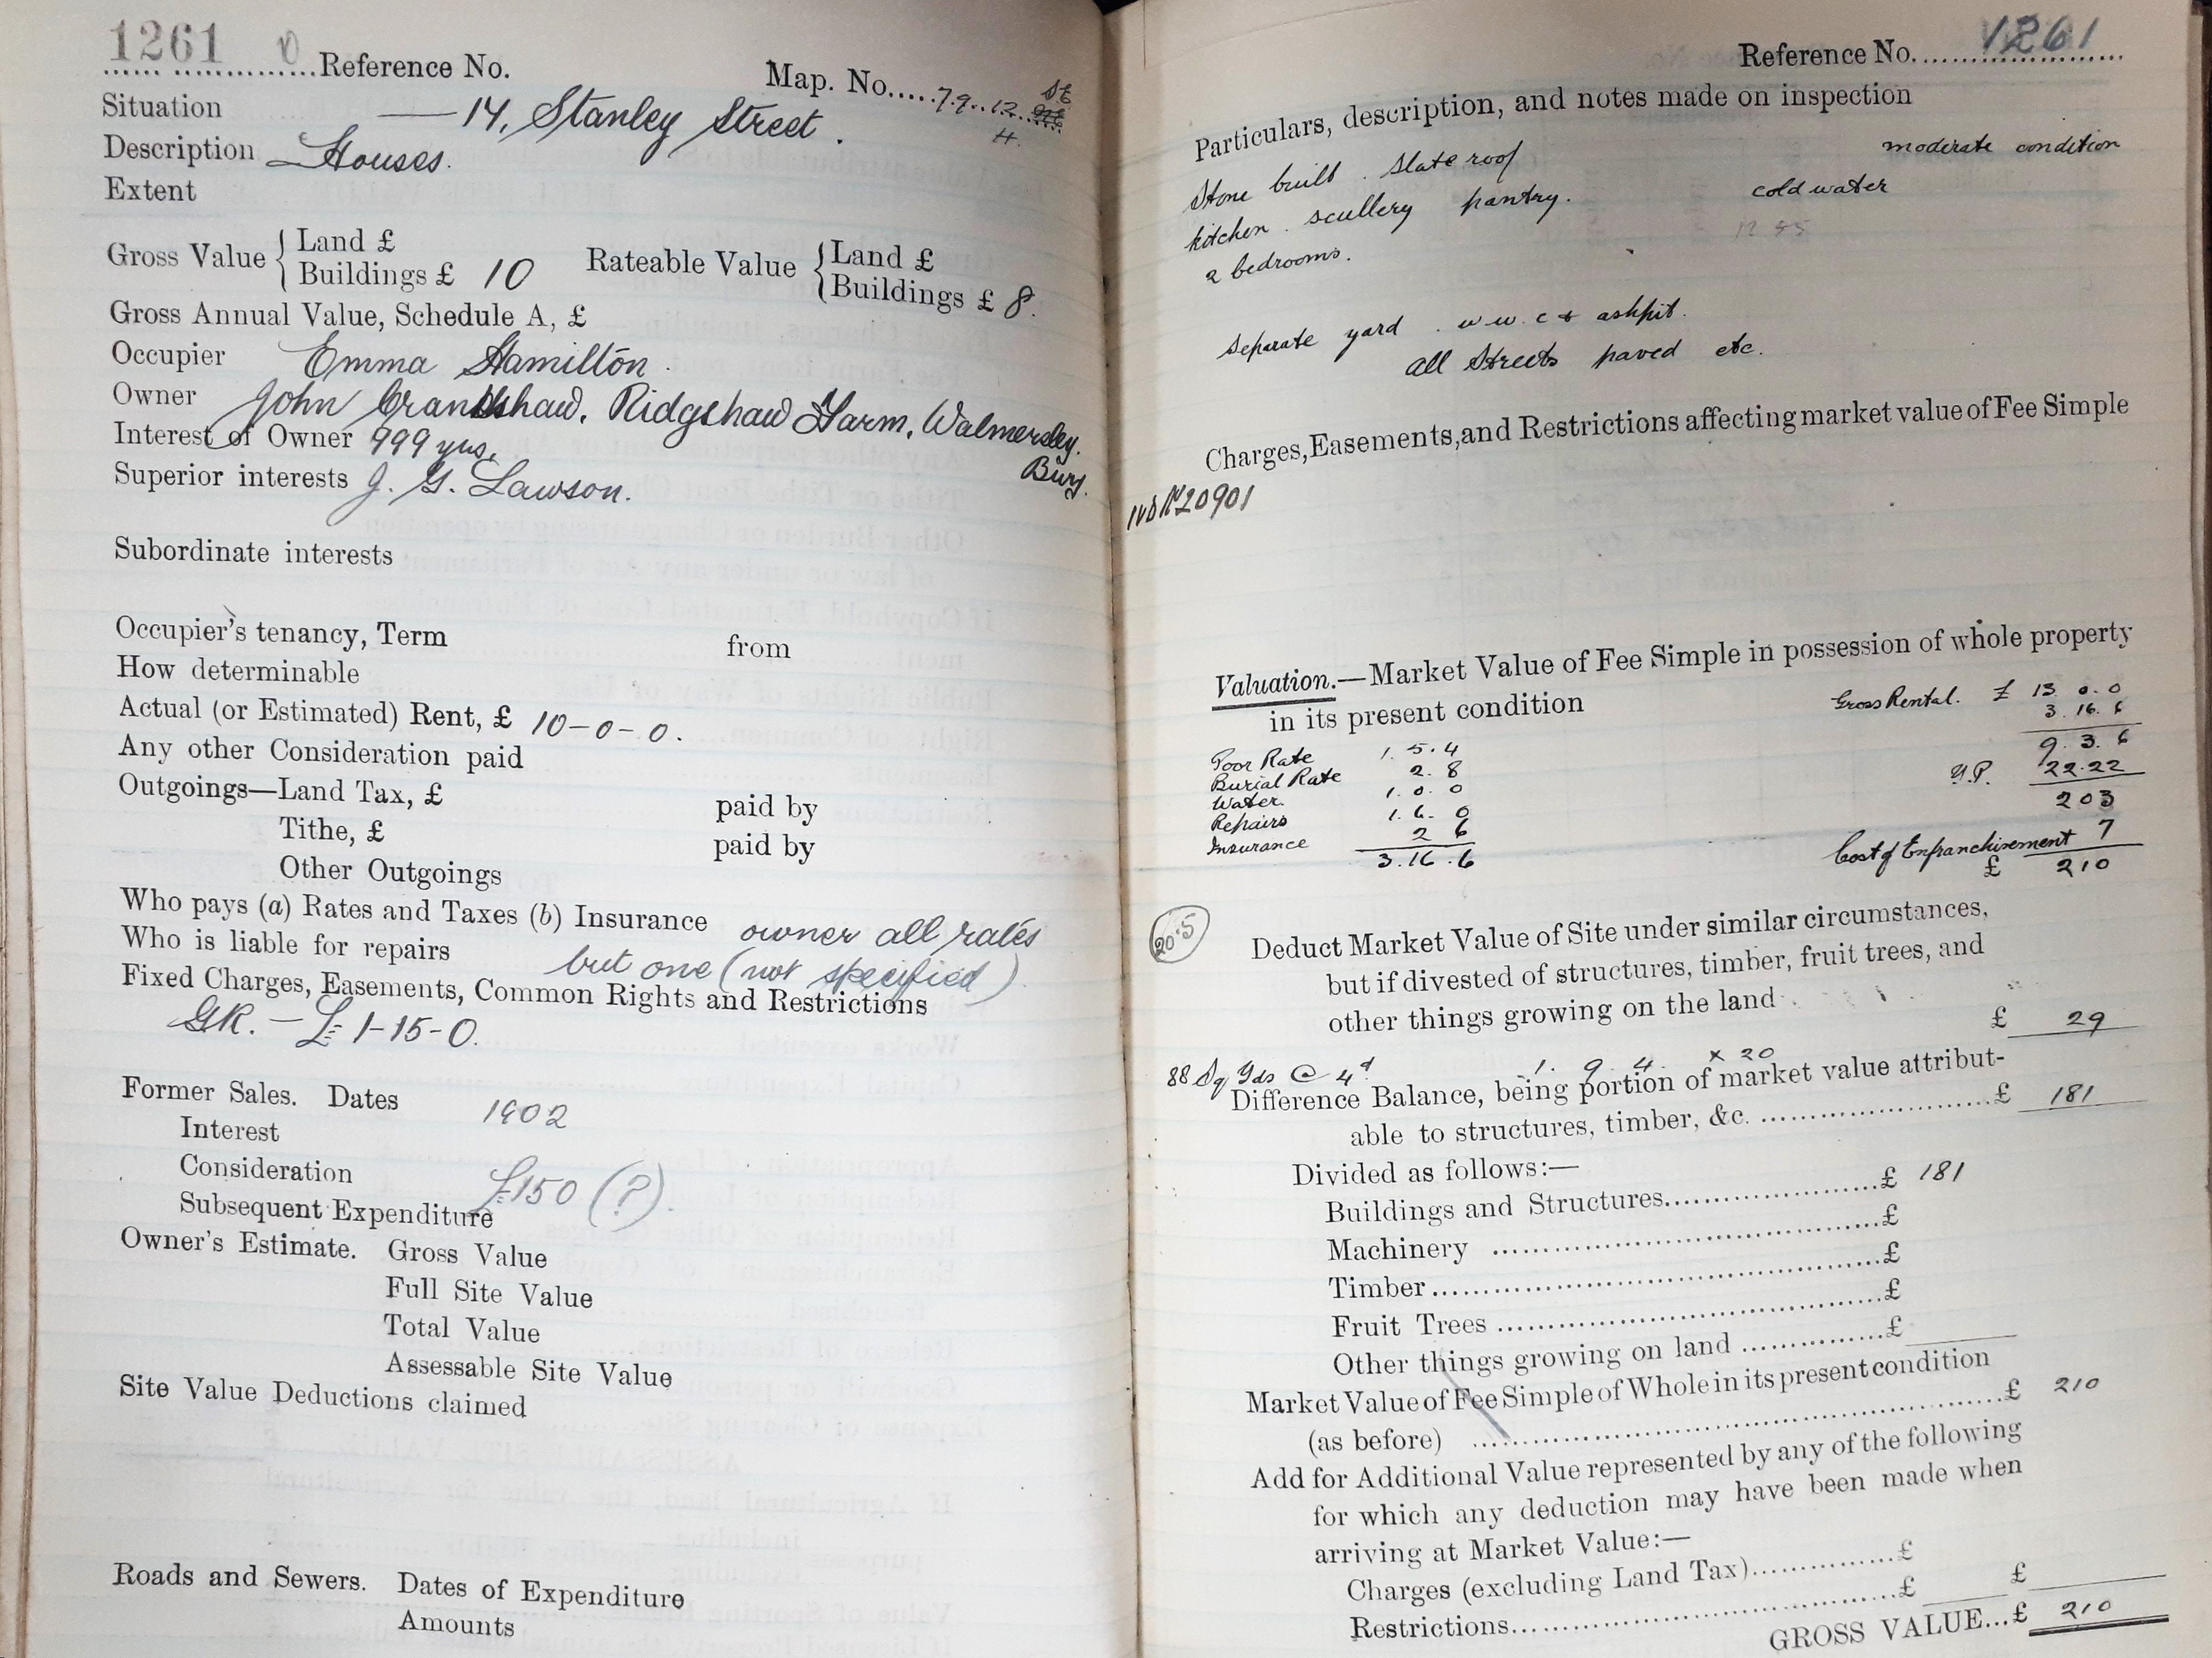 1261
Reference No. Map. No. 79..12. SE
Situation — 14, Stanley Street.
Description Houses.
Extent
Gross Value { Land £
Buildings £ 10
Rateable Value { Land £
Buildings £ 8.
Gross Annual Value, Schedule A, £
Occupier Emma Hamilton.
Owner John Crankshaw, Ridgshaw Farm, Walmersley. Bury.
Interest of Owner 999 yrs.
Superior interests J. G. Lawson.
Subordinate interests
Occupier's tenancy, Term from
How determinable
Actual (or Estimated) Rent, £ 10-0-0.
Any other Consideration paid
Outgoings—Land Tax, £ paid by
Tithe, £ paid by
Other Outgoings
Who pays (a) Rates and Taxes (b) Insurance owner all rates
Who is liable for repairs but one (not specified)
Fixed Charges, Easements, Common Rights and Restrictions
GR. — £1-15-0.
Former Sales. Dates 1902
Interest
Consideration £150 (?)
Subsequent Expenditure
Owner's Estimate. Gross Value
Full Site Value
Total Value
Assessable Site Value
Site Value Deductions claimed
Roads and Sewers. Dates of Expenditure
Amounts
Reference No. 1261
Particulars, description, and notes made on inspection
Stone built. Slate roof moderate condition
kitchen. scullery pantry. cold water
2 bedrooms.
Separate yard. w.w.c & ashpit.
all Streets paved etc.
Charges, Easements, and Restrictions affecting market value of Fee Simple
20901
Valuation.—Market Value of Fee Simple in possession of whole property
in its present condition
Gross Rental. £ 13. 0. 0
3. 16. 6
9. 3. 6
Y.P. 22.22
203
Cost of Enfranchisement 7
£ 210
Poor Rate 1. 5. 4
Burial Rate 2. 8
Water. 1. 0. 0
Repairs 1. 6. 0
Insurance 2 6
3. 16. 6
20.5
Deduct Market Value of Site under similar circumstances,
but if divested of structures, timber, fruit trees, and
other things growing on the land £ 29
88 Sq Yds @ 4d 1. 9. 4. x 20
Difference Balance, being portion of market value attribut-
able to structures, timber, &c. £ 181
Divided as follows:—
Buildings and Structures £ 181
Machinery £
Timber £
Fruit Trees £
Other things growing on land £
Market Value of Fee Simple of Whole in its present condition
(as before) £ 210
Add for Additional Value represented by any of the following
for which any deduction may have been made when
arriving at Market Value:—
Charges (excluding Land Tax) £
Restrictions £ £
GROSS VALUE...£ 210